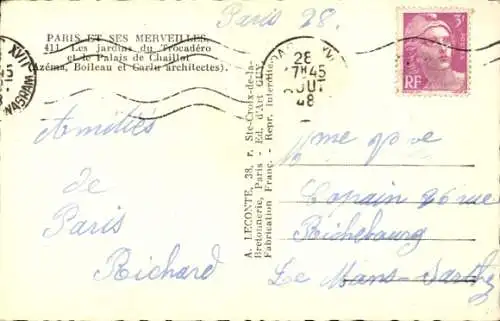 Paris 28.
PARIS ET SES MERVEILLES.
411. Les jardins du Trocadéro
et le Palais de Chaillot
(Azéma, Boileau et Carlu architectes).
Amitiés
de
Paris
Richard
A. LECONTE, 38, r. Ste-Croix-de-la-
Bretonnerie, Paris - Ed. d'Art GUY
Fabrication Franç. - Repr. interdite
XVII
WAGRAM
28
7H45
AOUT
48
3F
RF
Mme
Copain 96 rue
Richebourg
Le Mans-Sarthe